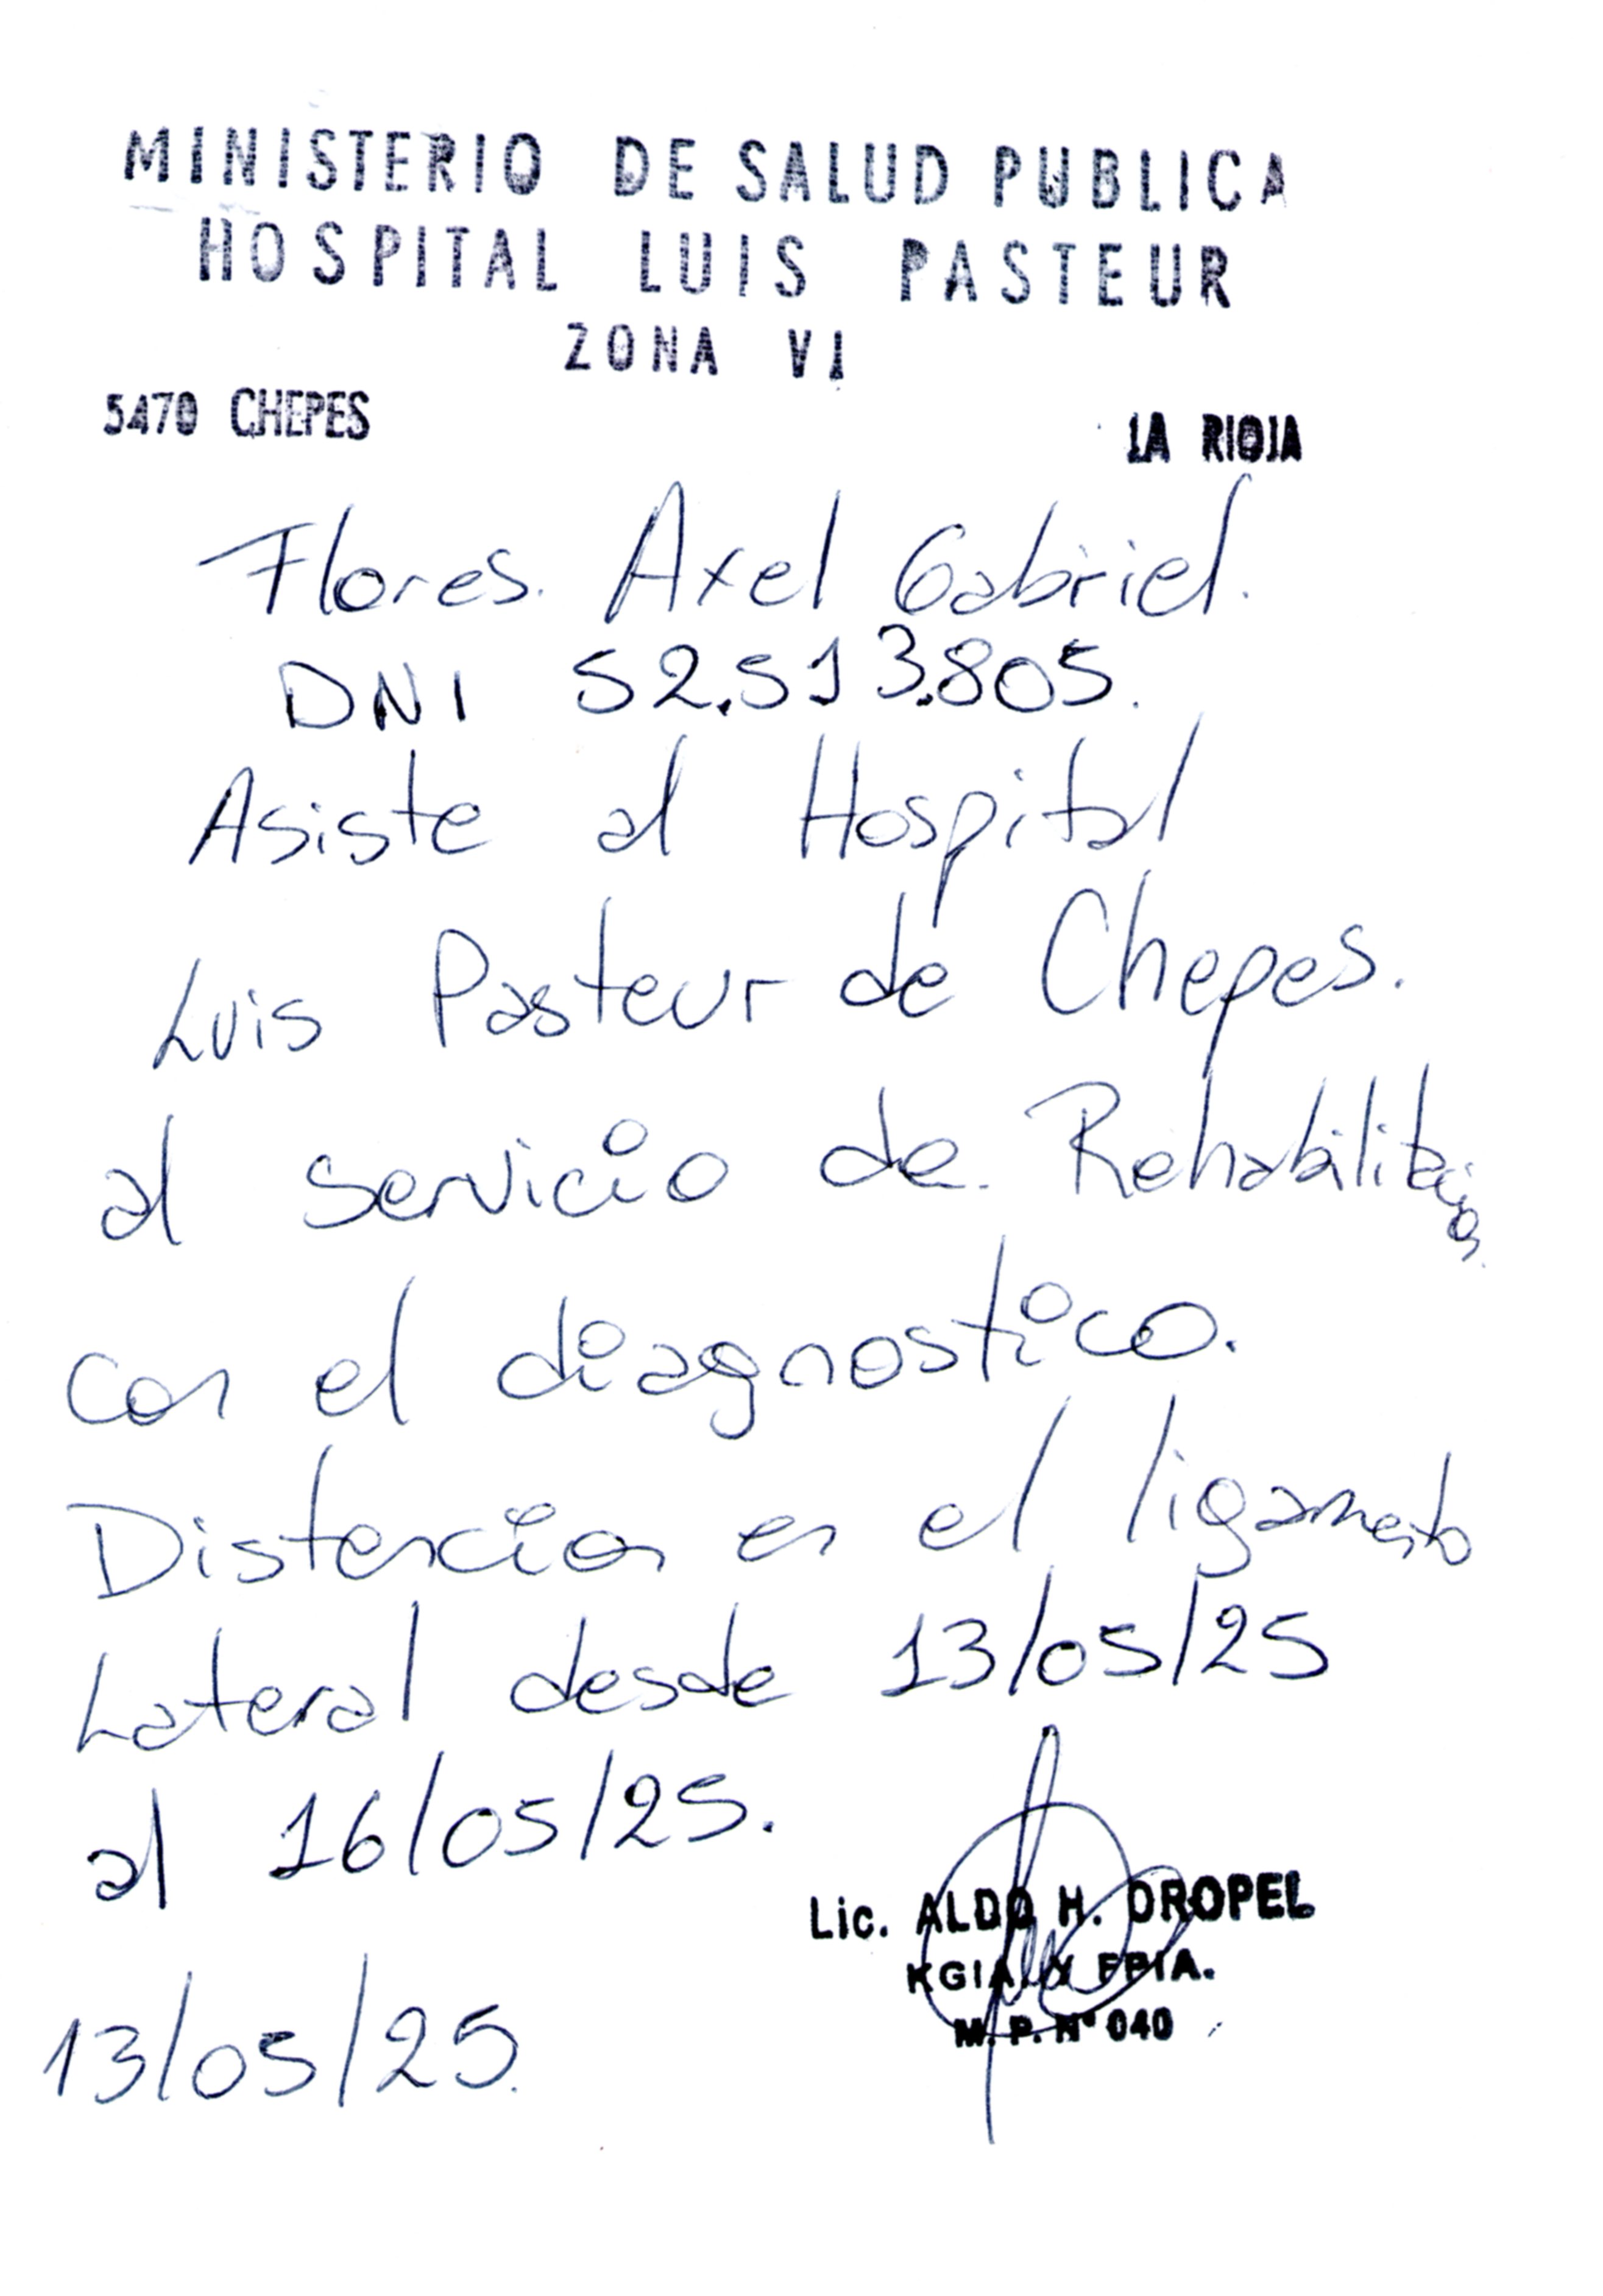 MINISTERIO DE SALUD PUBLICA
HOSPITAL LUIS PASTEUR
ZONA VI
5470 CHEPES LA RIOJA
Flores. Axel Gabriel.
DNI 52.513.805.
Asiste al Hospital
Luis Pasteur de Chepes.
al servicio de. Rehabilitacion
con el diagnostico.
Distencion en el ligamento
Lateral desde 13/05/25
al 16/05/25.
Lic. ALDO H. OROPEL
KGIA. Y FPIA.
M. P. Nº 040
13/05/25.